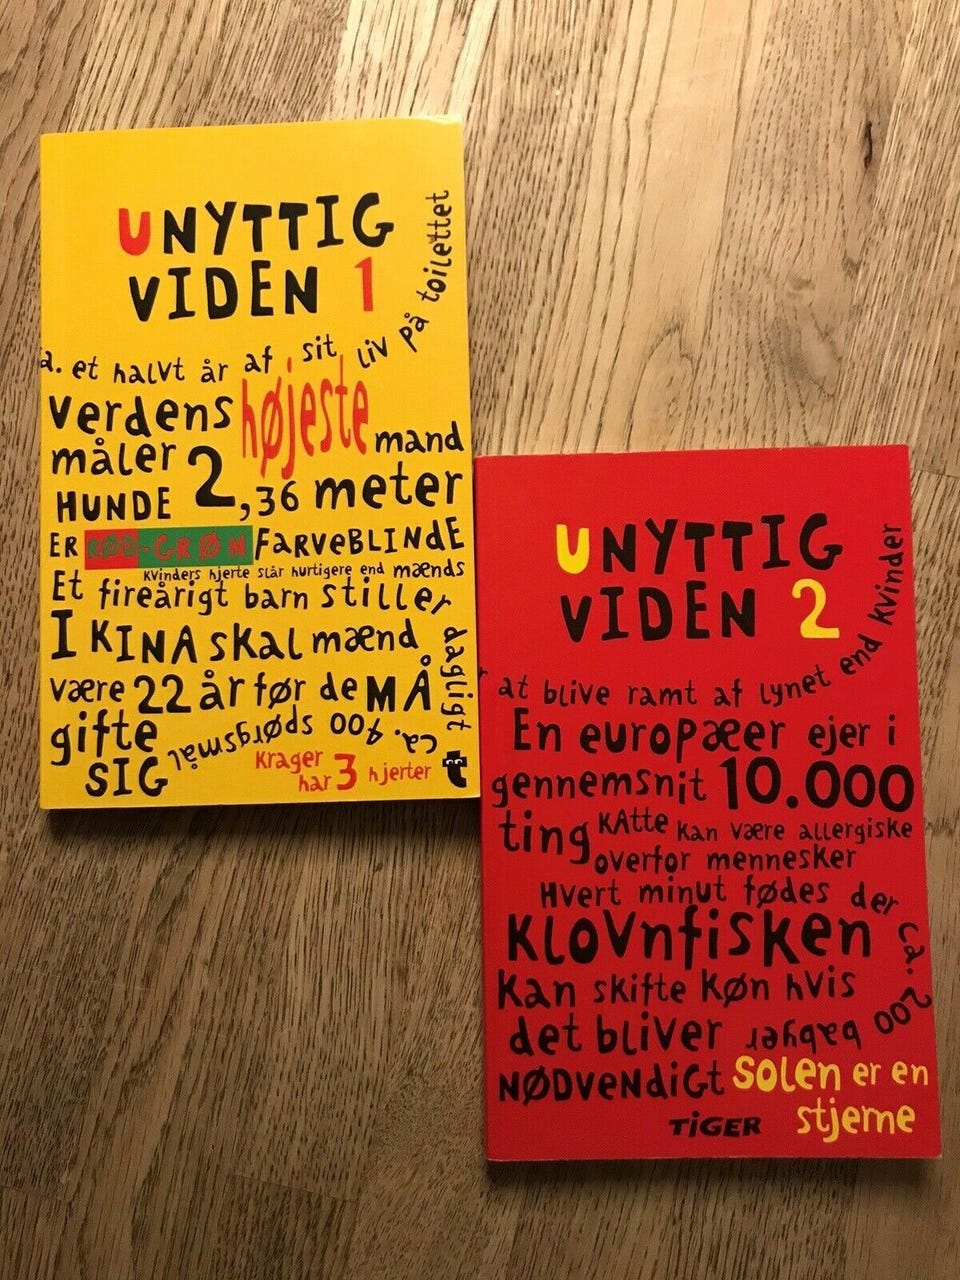 UNYTTIG
VIDEN 1
a. et halvt år af sit liv på toilettet
verdens højeste mand
måler 2,36 meter
HUNDE
ER RØD-GRØN FARVEBLINDE
Kvinders hjerte slår hurtigere end mænds
Et fireårigt barn stiller dagligt
ca. 400 spørgsmål
I KINA skal mænd
være 22 år før de MÅ
gifte
SIG
Krager
har 3 hjerter
UNYTTIG
VIDEN 2
r at blive ramt af lynet end kvinder
En europæer ejer i
gennemsnit 10.000
ting
KAtte kan være allergiske
overfor mennesker
Hvert minut fødes der ca. 200
babyer
Klovnfisken
kan skifte køn hvis
det bliver
NØDVENDiGt
Solen er en
stjerne
TiGER